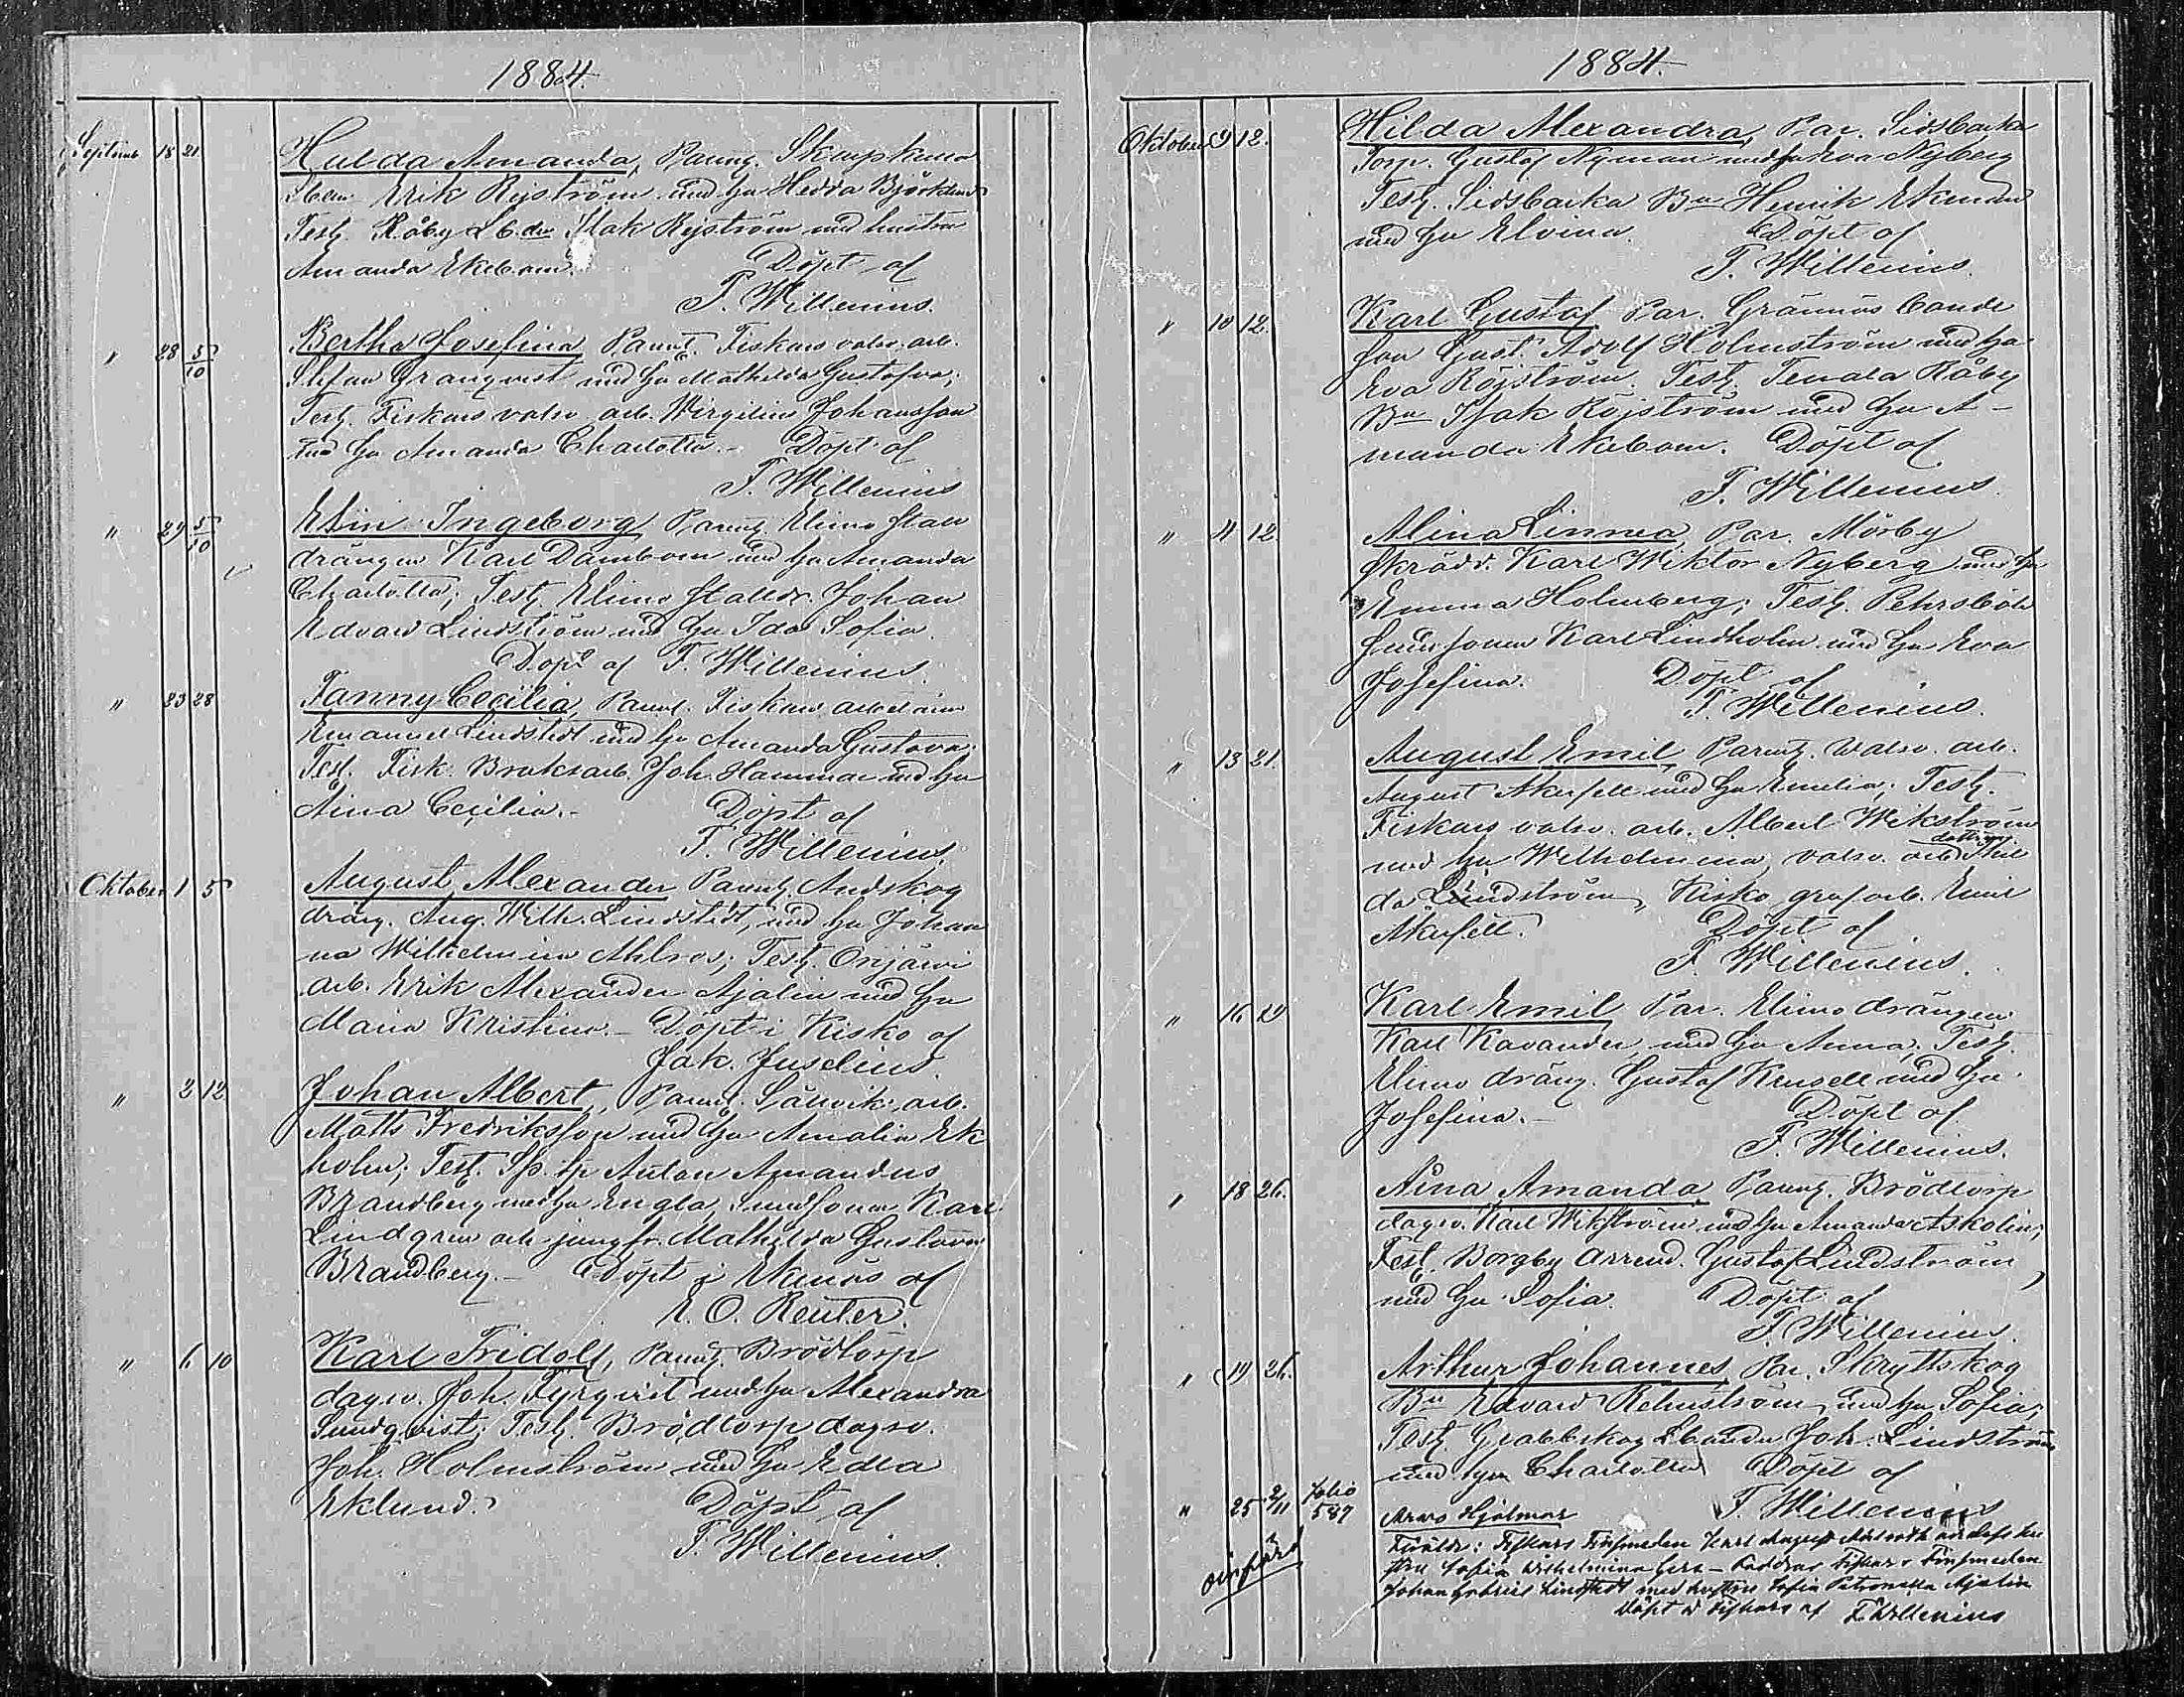 1884.
September 18 21. Hulda Amanda, Parent. Skarpkulla
Erik Rejström med hu Hedda Björklund
Test. Råby Isak Rejström med hustru
Amanda Ekebom. Döpt af
F. Willenius.
" 28 5/10 Bertha Josefina, Parent. Fiskars valsv. arb.
Stefan Granqvist med hu Mathilda Gustafva;
Test. Fiskars valsv. arb. Wirgilius Johansson
med hu Amanda Charlotta. - Döpt af
F. Willenius
" 29 5/10 Elin Ingeborg, Parent. Elimo stall
drängen Karl Dambom med hu Amanda
Charlotta; Test. Elimo stalldr. Johan
Edvard Lindström med hu Ida Sofia.
Döpt af F. Willenius.
" 23 28 Fanny Cecilia, Parent. Fiskars
Emanuel Lindstedt med hu Amanda Gustava.
Test. Fisk. Bruksarb. Joh. Hammar med hu
Aina Cecilia. - Döpt af
F. Willenius.
Oktober 1 5 August Alexander Parent. Andskog
dräng. Aug. Wilh. Lindstedt, med hu Johan
na Wilhelmina Ahlros; Test. Orijärvi
arb. Erik Alexander Ajalin med hu
Maria Kristina. - Döpt i Kisko af
Jak. Juselius.
" 2 12. Johan Albert, Parent. arb.
Matts Fredriksson med hu Amalia Ek
holm; Test. Anton Amandus
Brandberg med hu Engla, Karl
Lindgren och jungfr. Mathilda Gustava
Brandberg. - Döpt i Ekenäs af
E. O. Reuter.
" 6 10 Karl Fridolf, Parent. Brödtorp
dagsv. Joh. Fyrqvist med hu Alexandra
Sundqvist; Test. Brödtorp dagsv.
Joh. Holmström med hu Edla
Eklund. Döpt af
F. Willenius.
1884.
Oktober 9 12. Hilda Alexandra, Par. Sidsbacka
Torp. Gustaf Nyman med hu Eva Nyberg
Test. Sidsbacka Bn Henrik Ekman
med hu Elvina. Döpt af
F. Willenius.
" 10 12. Karl Gustaf Par. Grännäs bonde
son Gust. Adolf Holmström med hu
Eva Röjström. Test. Tenala Råby
Bn Isak Röjström med hu A-
manda Ekebom. Döpt af
F. Willenius.
" 11 12. Alina Linnea, Par. Mörby
skrädd. Karl Wiktor Nyberg med hu
Emma Holmberg; Test. Pehrsböle
Karl Lindholm med hu Eva
Josefina. Döpt af
F. Willenius.
" 13 21. August Emil, Parent. valsv. arb.
August Akufelt med hu Emelia; Test.
Fiskars valsv. arb. Albert Wikström
med hu Wilhelmina, valsv. arb. dottren Hil
da Lundström, Kisko grufarb. Emil
Akufelt. Döpt af
F. Willenius.
" 16 19 Karl Emil Par. Elimo drängen
Karl Kavander, med hu Anna; Test.
Elimo dräng. Gustaf Krusell med hu
Josefina. - Döpt af
F. Willenius.
" 18 26. Aina Amanda Parent. Brödtorp
dagsv. Karl Wikström med hu Amanda Askolin;
Test. Borgby arrend. Gustaf Lindström
med hu Sofia. Döpt af
F. Willenius.
" 19 26. Arthur Johannes, Par. Skryttskog
Bn Edvard Rehnström, med hu Sofia;
Test. Grabbskog Joh. Lindström
med hu Charlotta Döpt af
F. Willenius
" 25 2/11 folio 587 Arvo Hjalmar
Föräldr: Fiskars Finsmeden Karl August och dess hu
stru Sofia Wilhelmina - Faddrar Fiskars Finsmeden
Johan Gabriel Lindstedt med hustru Sofia Petronella Ajalin
Döpt i Fiskars af F. Willenius